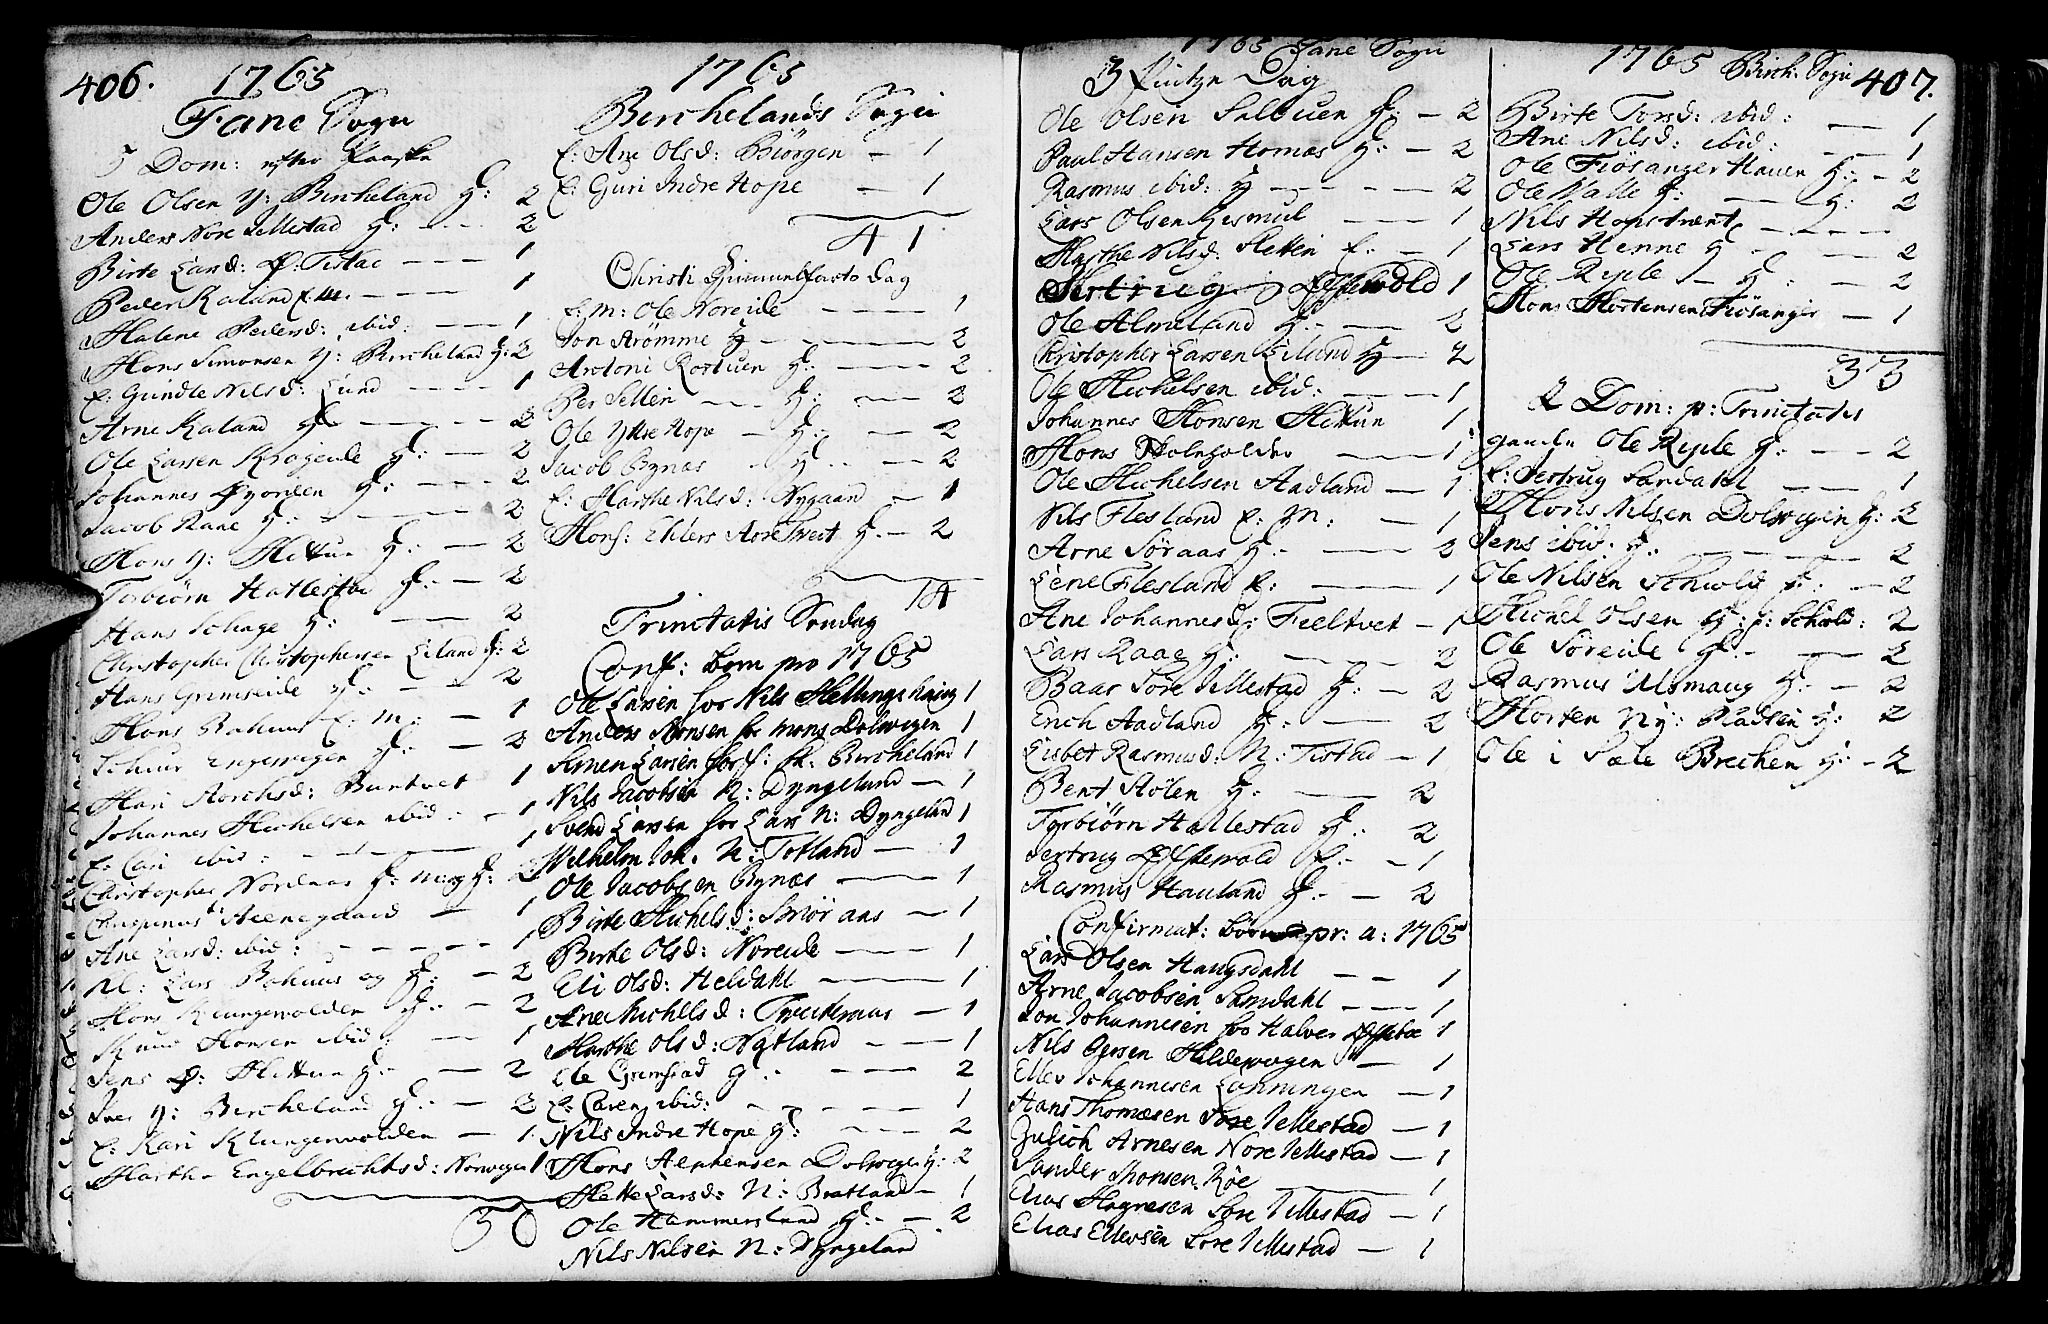 406. 1765
Fane Sogn
5 Dom: efter Paaske
Ole Olsen Y: Bircheland H: 2
Anders Nore Tellestad H: - 2
Birte Larsd: Ø: Titlestad - 1
Peder Kaland E: M. - 1
Malene Pedersd: ibid: - 1
Mons Simonsen Y: Bircheland H: 2
E: Gundle Nilsd: Lund - 1
Arne Kaland H: - 2
Ole Larsen Krageide H: - 2
Johannes Øvorden H: - 2
Jacob Rane H: - 2
Mons Y: Mittun H: - 2
Torbiörn Hatlestad H: - 2
Hans Schage H: - 2
Christopher Christophersen Eiland H: 2
Hans Grimseide H: - 2
Mons Bahuus E: M: - 1
Schuur Ingevogen H: - 2
Mari Monsd: Buntvet 1
Johannes Michelsen ibid: - 1
E: Cari ibid: - 1
Christopher Nordaas H: 2
Crispinus Steenegaard - 1
Ane Larsd: ibid: - 1
Nl: Lars Bahuus og H: - 2
Mons Klungevolden H: - 2
Monsen ibid: - 1
Jens Ø: Mittun H: - 2
Iver Y: Bircheland H: - 2
E: Kari Klungervolden - 1
Marthe Engelbrechtsd: Norwogen 1
50
1765
Birchelands Sogn
E: Ane Olsd: Biörgen - 1
E: Guri Indre Hope - 1
41
Christi Himmelfarts Dag
E: M: Ole Noreide - 1
Jon Strömme H - 2
Antoni Rortuen H: - 2
Per Sellen - H: - 2
Ole Yttre Hope - H: - 2
Jacob Bynæs - H: - 2
E: Marthe Nilsd: Nygaard - 1
Mons: Ehlers Aarstvet H: - 2
14
Trinitatis Søndag
Conf: børn pro 1765
Ole Larsen for Nils Hellingehaug 1
Anders Monsen for Mons Dolwogen 1
Simen Larsen for Bircheland 1
Nils Jacobsen N: Dyngeland - 1
Svend Larsen for Lars N: Dyngeland 1
Wilhelm Joh. N: Totland - 1
Ole Jacobsen Bynæs - 1
Birte Michelsd: Smöraas - 1
Birte Olsd: Noreide - 1
Eli Olsd: Heldahl - 1
Ane Michelsd: Tveiteraas - 1
Marthe Olsd: Natland - 1
Ole Grimstad H: - 2
E: Caren ibid: - 1
Nils Indre Hope H: - 2
Mons Dolwogen H: 2
Mette Larsd: N: Bratland - 1
Ole Hammersland H: - 2
Nils Nilsen N: Dyngeland
1765 Fane Sogn
3 Pintze Dag
Ole Olsen Salbuen H: - 2
Paul Hansen Homas H: - 2
Rasmus ibid: H - 2
Lars Olsen Kismul - 1
Marthe Nilsd: Sletten E: - 1
Siertrug Øffsevold 1
Ole Almeland H: - 2
Christopher Larsen Eiland H - 2
Ole Michelsen ibid: - 1
Johannes Monsen Mittun 1
Mons Skoleholder - 1
Ole Michelsen Aadland - 1
Nils Flesland E: M: - 1
Arne Söraas H: - 2
Lene Flesland E: - 1
Ane Johannesd: Fieltvet - 1
Lars Raae H: - 2
Baar Söre Tellestad H: - 2
Erich Aadland H: - 2
Lisbet Rasmusd: N: Tistad - 1
Bent Stölen H: - 2
Torbiörn Hallestad H: 2
Siertrug Øffsevold E: - 1
Rasmus Hauland H: - 2
Confirmat: børn pr: a: 1765
Lars Olsen Haugsdahl - 1
Arne Jacobsen Samdahl - 1
Jon Johannesen for Halvor 1
Nils Giersen Mildewogen - 1
Ellev Johannesen Lönningen - 1
Hans Thomæsen Söre Tellestad - 1
Zulich Arnesen Nore Tellestad - 1
Sander Monsen Röe - 1
Elias Magnesen Söre Tellestad - 1
Elias Ellevsen Söre Tellestad - 1
1765 Birch: Sogn 407.
Birte Torsd: ibid: - 1
Ane Nilsd: ibid: - 1
Ole Fiösanger Hauen H: - 2
Ole Nalle H: - 2
Nils Hopstrænt -
Lars Henne H - 2
Ole Riple - H: - 2
Mons Mortensen Fiösanger - 1
33
2 Dom: p: Trinitatis
gamle Ole Riple H: - 2
E: Siertrug Sandahl - 1
Mons Nilsen Dolwogen H: 2
Jens ibid: H: - 2
Ole Nilsen Schiold H: - 2
Michel Olsen H: p: Schiold: 2
Ole Söreide H: - 2
Rasmus Ulsmaug H: - 2
Morten Ny: Pladsen H: 2
Ole i Sæle Brechen H: - 2